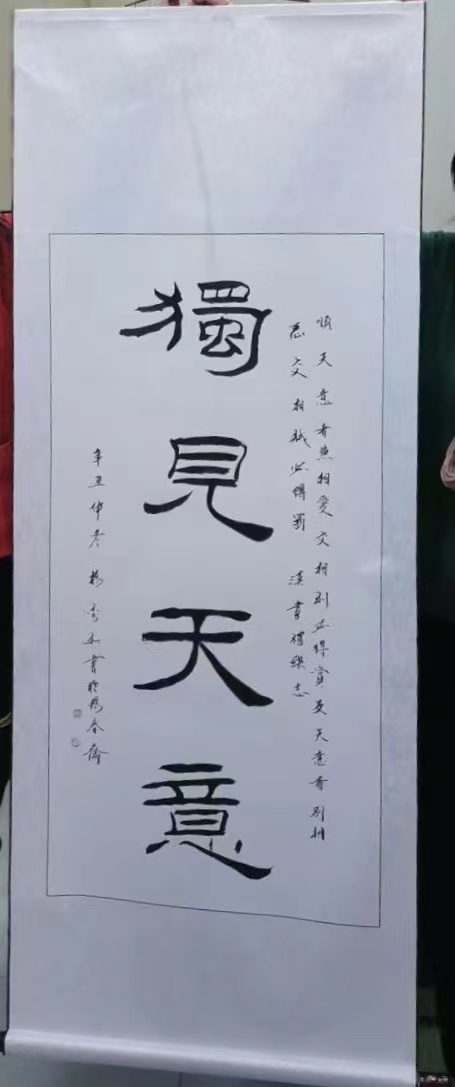 順天意者兼相愛交相利必得賞反天意者別相
惡交相賊必得罰 漢書禮樂志
獨見天意
辛丑仲冬 楊書於齋